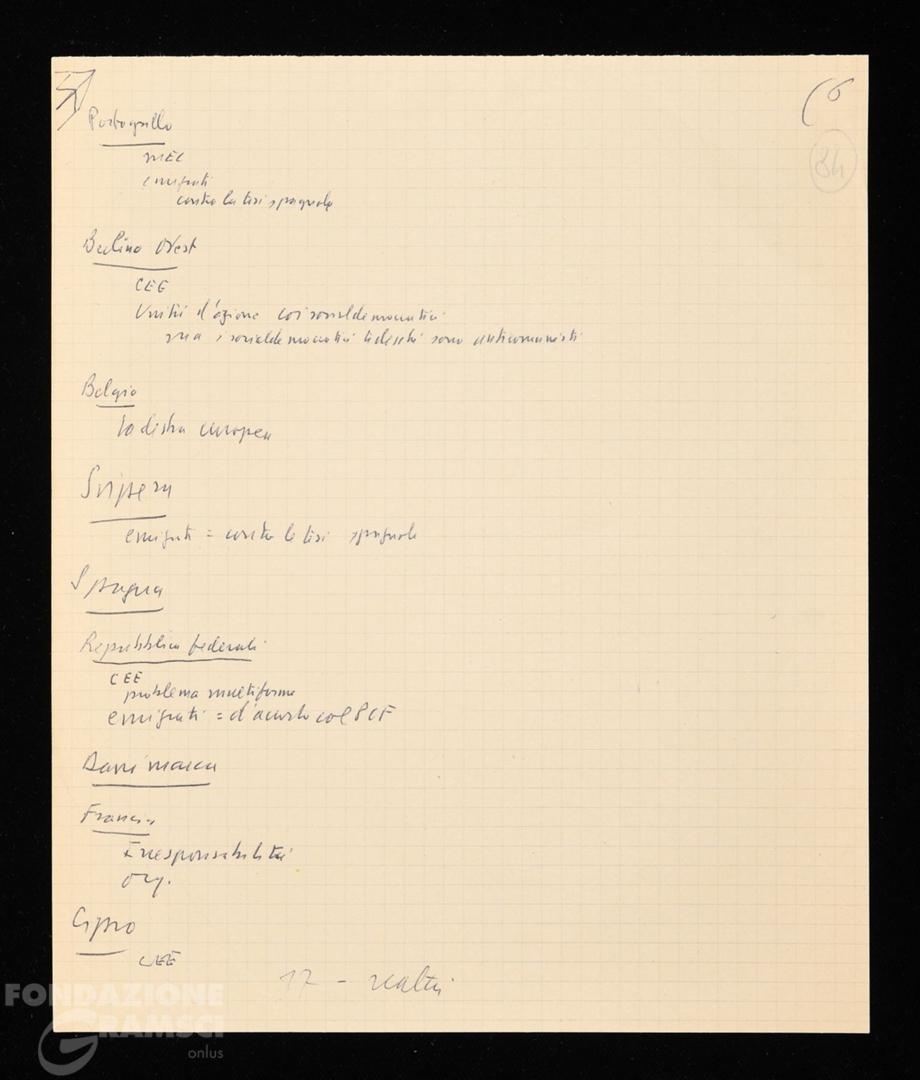 6
34
Portogallo
MEC
emigrati
contro la tesi spagnola
Berlino Ovest
CEE
Unità d'azione coi socialdemocratici
ma i socialdemocratici tedeschi sono anticomunisti
Belgio
europea
Svizzera
emigrati = contro le tesi spagnole
Spagna
Repubblica federale
CEE
problema multiforme
emigrati = d'accordo col PCF
Danimarca
Francia
Irresponsabilità
org.
Cipro
CEE
17 - realtà
FONDAZIONE
GRAMSCI
onlus